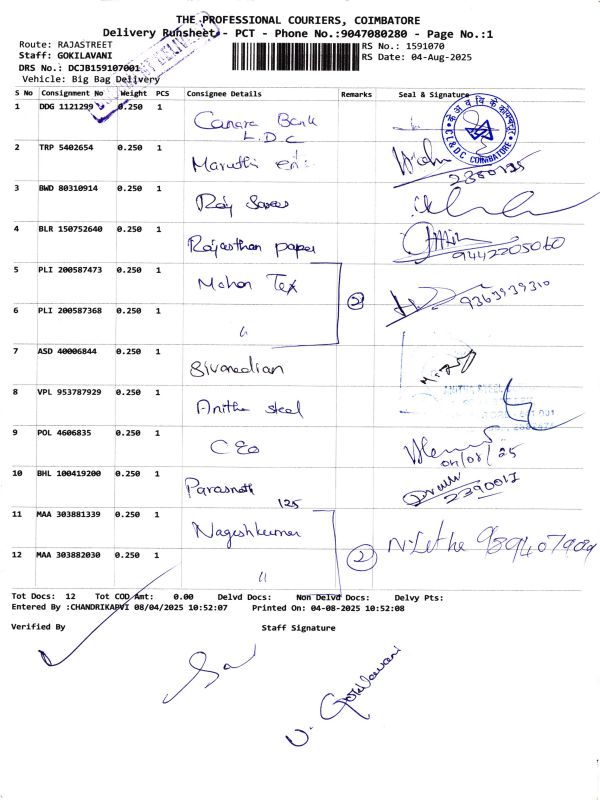 THE PROFESSIONAL COURIERS, COIMBATORE
Delivery Runsheet - PCT - Phone No.:9047080280 - Page No.:1
Route: RAJASTREET
RS No.: 1591070
Staff: GOKILAVANI
RS Date: 04-Aug-2025
DRS No.: DCJB159107001
Vehicle: Big Bag Delivery
S No Consignment No Weight PCS Consignee Details Remarks Seal & Signature
1 DDG 1121299 0.250 1 Canara Bank
L.D.C
C I & D C COIMBATORE
2 TRP 5402654 0.250 1 Maruthi
2380125
3 BWD 80310914 0.250 1 Raj
4 BLR 150752640 0.250 1 Rajasthan paper
9442205060
5 PLI 200587473 0.250 1 Mohan Tex
2 9363939310
6 PLI 200587368 0.250 1 "
7 ASD 40006844 0.250 1 Sivanadian
ANITHA STEEL
8 VPL 953787929 0.250 1 Anitha steel
9 POL 4606835 0.250 1 CEO
04/08/25
10 BHL 100419200 0.250 1 Parasnath
125
2390017
11 MAA 303881339 0.250 1 Nageshkumar
2 N. Letha 989407909
12 MAA 303882030 0.250 1 "
Tot Docs: 12 Tot COD Amt: 0.00 Delvd Docs: Non Delvd Docs: Delvy Pts:
Entered By :CHANDRIKAPVI 08/04/2025 10:52:07 Printed On: 04-08-2025 10:52:08
Verified By Staff Signature
V. Gokilavani